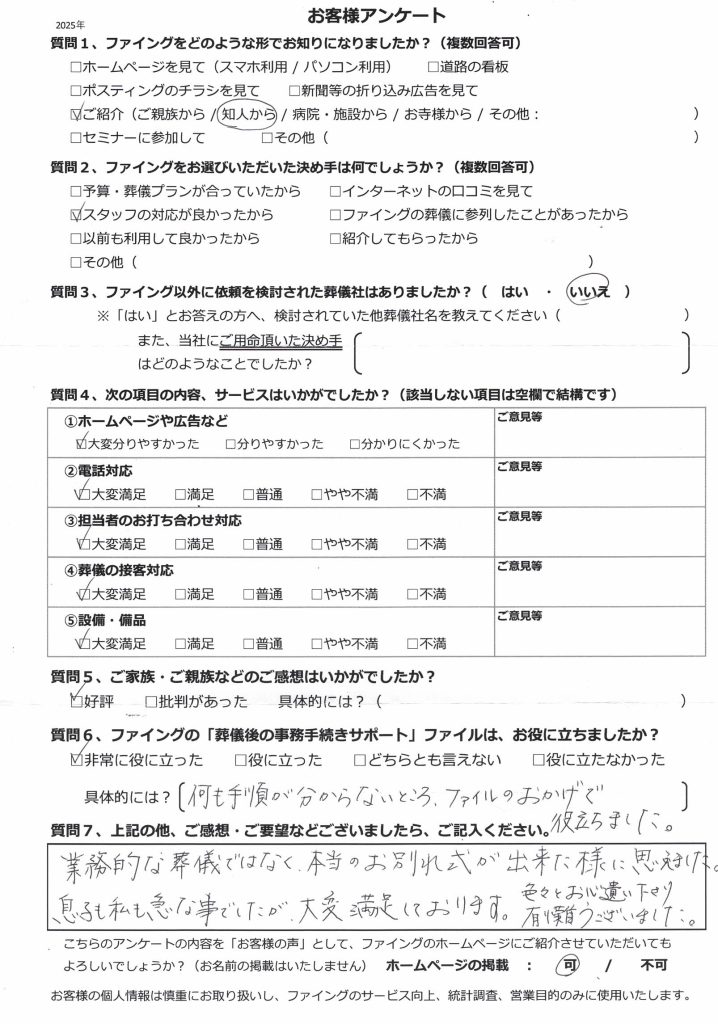 お客様アンケート
2025年
質問１、ファイングをどのような形でお知りになりましたか？（複数回答可）
□ホームページを見て（スマホ利用 / パソコン利用）　□道路の看板
□ポスティングのチラシを見て　□新聞等の折り込み広告を見て
☑ご紹介（ご親族から / 知人から / 病院・施設から / お寺様から / その他：　）
□セミナーに参加して　□その他（　）
質問２、ファイングをお選びいただいた決め手は何でしょうか？（複数回答可）
□予算・葬儀プランが合っていたから　□インターネットの口コミを見て
☑スタッフの対応が良かったから　□ファイングの葬儀に参列したことがあったから
□以前も利用して良かったから　□紹介してもらったから
□その他（　）
質問３、ファイング以外に依頼を検討された葬儀社はありましたか？（　はい　・　いいえ　）
※「はい」とお答えの方へ、検討されていた他葬儀社名を教えてください（　）
また、当社にご用命頂いた決め手
はどのようなことでしたか？
質問４、次の項目の内容、サービスはいかがでしたか？（該当しない項目は空欄で結構です）
①ホームページや広告など　ご意見等
☑大変分りやすかった　□分りやすかった　□分かりにくかった
②電話対応　ご意見等
☑大変満足　□満足　□普通　□やや不満　□不満
③担当者のお打ち合わせ対応　ご意見等
☑大変満足　□満足　□普通　□やや不満　□不満
④葬儀の接客対応　ご意見等
☑大変満足　□満足　□普通　□やや不満　□不満
⑤設備・備品　ご意見等
☑大変満足　□満足　□普通　□やや不満　□不満
質問５、ご家族・ご親族などのご感想はいかがでしたか？
☑好評　□批判があった　具体的には？（　）
質問６、ファイングの「葬儀後の事務手続きサポート」ファイルは、お役に立ちましたか？
☑非常に役に立った　□役に立った　□どちらとも言えない　□役に立たなかった
具体的には？　何も手順が分からないところ、ファイルのおかげで
役立ちました。
質問７、上記の他、ご感想・ご要望などございましたら、ご記入ください。
業務的な葬儀ではなく、本当のお別れ式が出来た様に思えました。
息子も私も急な事でしたが、大変満足しております。
色々とお心遣い下さり
有り難うございました。
こちらのアンケートの内容を「お客様の声」として、ファイングのホームページにご紹介させていただいても
よろしいでしょうか？（お名前の掲載はいたしません）　ホームページの掲載　：　可　/　不可
お客様の個人情報は慎重にお取り扱いし、ファイングのサービス向上、統計調査、営業目的のみに使用いたします。